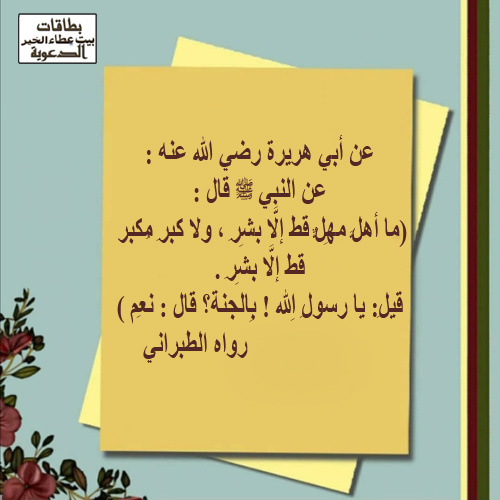 بطاقات
بيت عطاء الخير
الدعوية
عن أبي هريرة رضي الله عنه :
عن النبي ﷺ قال :
(ما أهلَّ مهلٌّ قط إلَّا بشرِ ، ولا كبر مكبر
قط إلَّا بشرِ .
قيل: يا رسول الله ! بالجنة؟ قال : نعم )
رواه الطبراني